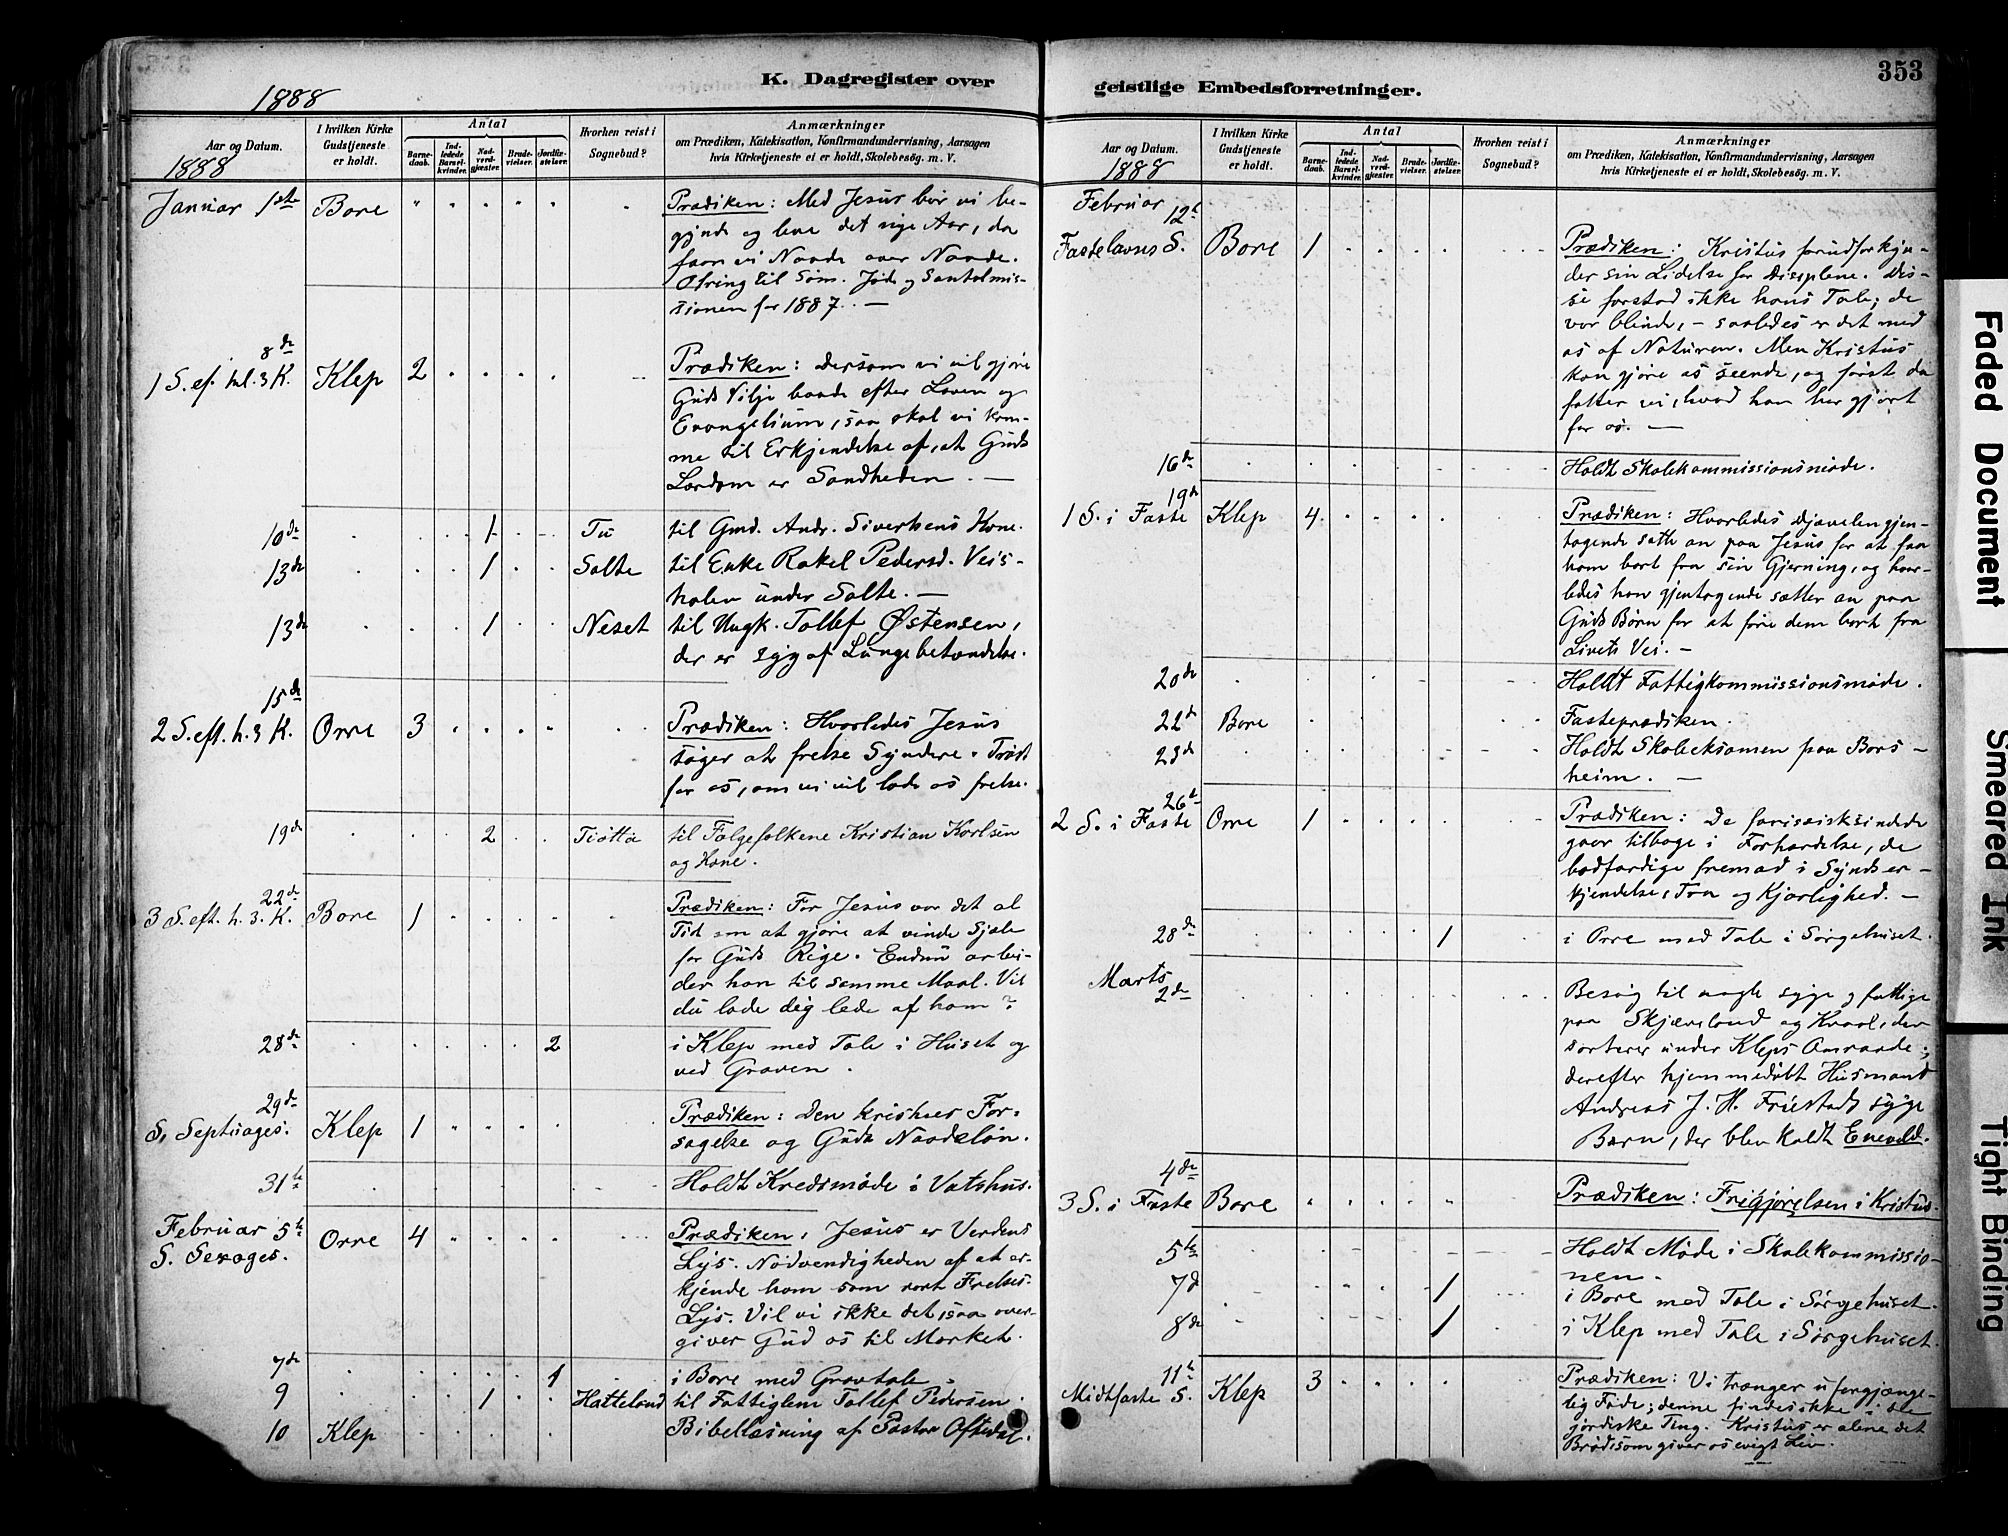 1888
K. Dagregister over
Aar og Datum.
1888
I hvilken Kirke
Gudstjeneste
er holdt.
Antal
Barne-
daab.
Ind-
ledede
Barsel-
kvinder.
Nad-
verd-
gjæster.
Brude-
vielser.
Jordfæ-
stelser.
Hvorhen reist i
Sognebud?
Anmærkninger
om Prædiken, Katekisation, Konfirmandundervisning, Aarsagen
hvis Kirketjeneste ei er holdt, Skolebesøg. m. V.
Januar 1ste Bore Prædiken: Med Jesus bør vi be-
gynde og leve det nye Aar, da
faar vi Naade over Naade.
Ofring til Søm. Jøde og Santalmis-
sionen for 1887. —
8de
1 S. ef. hel. 3 K. Klep 2 Prædiken: Dersom vi vil gjøre
Guds Vilje baade efter Loven og
Evangelium, saa skal vi kom-
me til Erkjendelse af, at Guds
Lærdom er Sandheden. —
10de 1 Tu til Gmd. Andr. Sivertsens Kone.
13de 1 Salte til Enke Rakel Pedersd. Veis-
holen under Salte. —
13de 1 Neset til Ungk. Tollef Østensen,
der er syg af Lungebetændelse.
15de
2 S. eft. h. 3 K. Orre 3 Prædiken: Hvorledes Jesus
søger at frelse Syndere. Trøst
for os, om vi vil lade os frelse.
19de 2 Tjøtta til Følgefolkene Kristian Karlsen
og Kone.
22de
3 S. eft. h. 3. K. Bore 1 Prædiken: For Jesus var det al
Tid om at gjøre at vinde Sjæle
for Guds Rige. Endnu arbei-
der han til samme Maal. Vil
du lade dig lede af ham?
28de 2 i Klep med Tale i Huset og
ved Graven.
29de
S. Septuages. Klep 1 Prædiken: Den kristnes For-
sagelse og Guds Naadeløn.
31te Holdt Kredsmøde i Vatshus.
Februar 5te
S. Sexages. Orre 4 Prædiken: Jesus er Verdens
Lys. Nødvendigheden af at er-
kjende ham som vort Frelses-
Lys. Vil vi ikke det, saa over-
giver Gud os til Mørket.
7de 1 i Bore med Gravtale.
9 1 Hatteland til Fattiglem Tollef Pedersen
10 Klep Bibellæsning af Pastor Oftedal.
353
geistlige Embedsforretninger.
Aar og Datum.
1888
I hvilken Kirke
Gudstjeneste
er holdt.
Antal
Barne-
daab.
Ind-
ledede
Barsel-
kvinder.
Nad-
verd-
gjæster.
Brude-
vielser.
Jordfæ-
stelser.
Hvorhen reist i
Sognebud?
Anmærkninger
om Prædiken, Katekisation, Konfirmandundervisning, Aarsagen
hvis Kirketjeneste ei er holdt, Skolebesøg. m. V.
Februar
12te
Fastelavns S. Bore 1 Prædiken: Kristus forudforkyn-
der sin Lidelse for Disciplene. Dis-
se forstod ikke hans Tale; de
var blinde, – saaledes er det med
os af Naturen. Men Kristus
kan gjøre os seende, og først da
fatter vi, hvad han har gjort
for os. —
16de Holdt Skolekommissionsmøde.
19de
1 S. i Faste Klep 4 Prædiken: Hvorledes Djævelen gjen-
tagende satte an paa Jesus for at faa
ham bort fra sin Gjerning, og hvor-
ledes han gjentagende sætter an paa
Guds Børn for at føre dem bort fra
Livets Vei. –
20de Holdt Fattigkommissionsmøde.
22de Bore Fasteprædiken.
23de Holdt Skoleeksamen paa Bors-
heim. —
26de
2 S. i Faste Orre 1 Prædiken: De farisæisksindede
gaar tilbage i Forhærdelse, de
bodfærdige fremad i Synds er-
kjendelse, Tro og Kjærlighed. –
28de 1 i Orre med Tale i Sørgehuset.
Marts
2de Besøg til nogle syge og fattige
paa Skjæveland og Kvaal, der
sorterer under Kleps Omraade;
derefter hjemmedøbt Husmand
Andreas J. H. Friestads syge
Barn, der blev kaldt Enevald.
4de
3 S. i Faste Bore Prædiken: Frigjørelsen i Kristus.
5te Holdt Møde i Skolekommissio-
nen.
7de 1 i Bore med Tale i Sørgehuset.
8de 1 i Klep med Tale i Sørgehuset.
11te
Midtfaste S. Klep 3 Prædiken: Vi trænger uforgjænge-
lig Føde; denne findes ikke i de
jordiske Ting. Kristus er alene det
Brød, som giver os evigt Liv.
Faded Document
Smeared Ink
Tight Binding